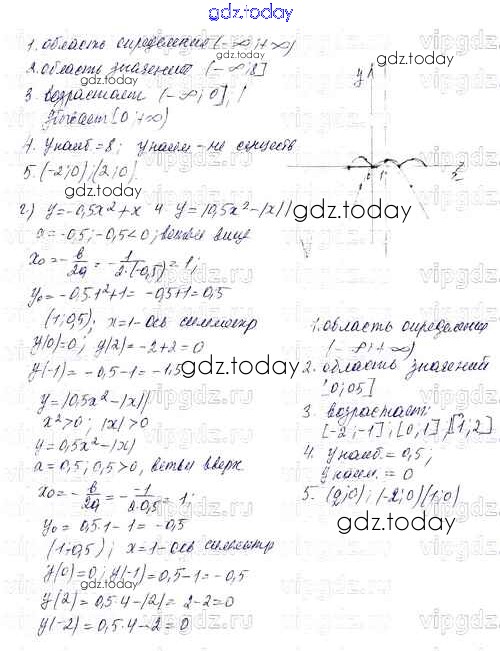 gdz.today
1. область определения (-∞; +∞)
gdz.today
2. область значений (-∞; 8]
3. возрастает (-∞; 0],
убывает [0; +∞)
4. y наиб. = 8; y наим - не существ
5. (-2; 0); (2; 0).
gdz.today
г) y = -0,5x² + x и y = |0,5x² - |x||
gdz.today
a = -0,5; -0,5 < 0; ветви вниз
x₀ = -в/2a = -1/2·(-0,5) = 1;
y₀ = -0,5·1² + 1 = -0,5 + 1 = 0,5
(1; 0,5); x = 1 - ось симметр
y(0) = 0; y(2) = -2 + 2 = 0
y(-1) = -0,5 - 1 = -1,5
gdz.today
y = |0,5x² - |x||
x² > 0; |x| > 0
y = 0,5x² - |x|
a = 0,5; 0,5 > 0, ветви вверх
x₀ = -в/2a = -(-1)/2·0,5 = 1;
y₀ = 0,5·1 - 1 = -0,5
(1; -0,5); x = 1 - ось симметр
gdz.today
y(0) = 0; y(-1) = 0,5 - 1 = -0,5
y(2) = 0,5·4 - |2| = 2 - 2 = 0
y(-2) = 0,5·4 - 2 = 0
y
gdz.today
x
1. область определения
(-∞; +∞)
2. область значений
[0; 0,5]
3. возрастает:
[-2; -1]; [0; 1]; [1; 2]
4. y наиб. = 0,5;
y наим. = 0
5. (0; 0); (-2; 0) (1; 0)
gdz.today